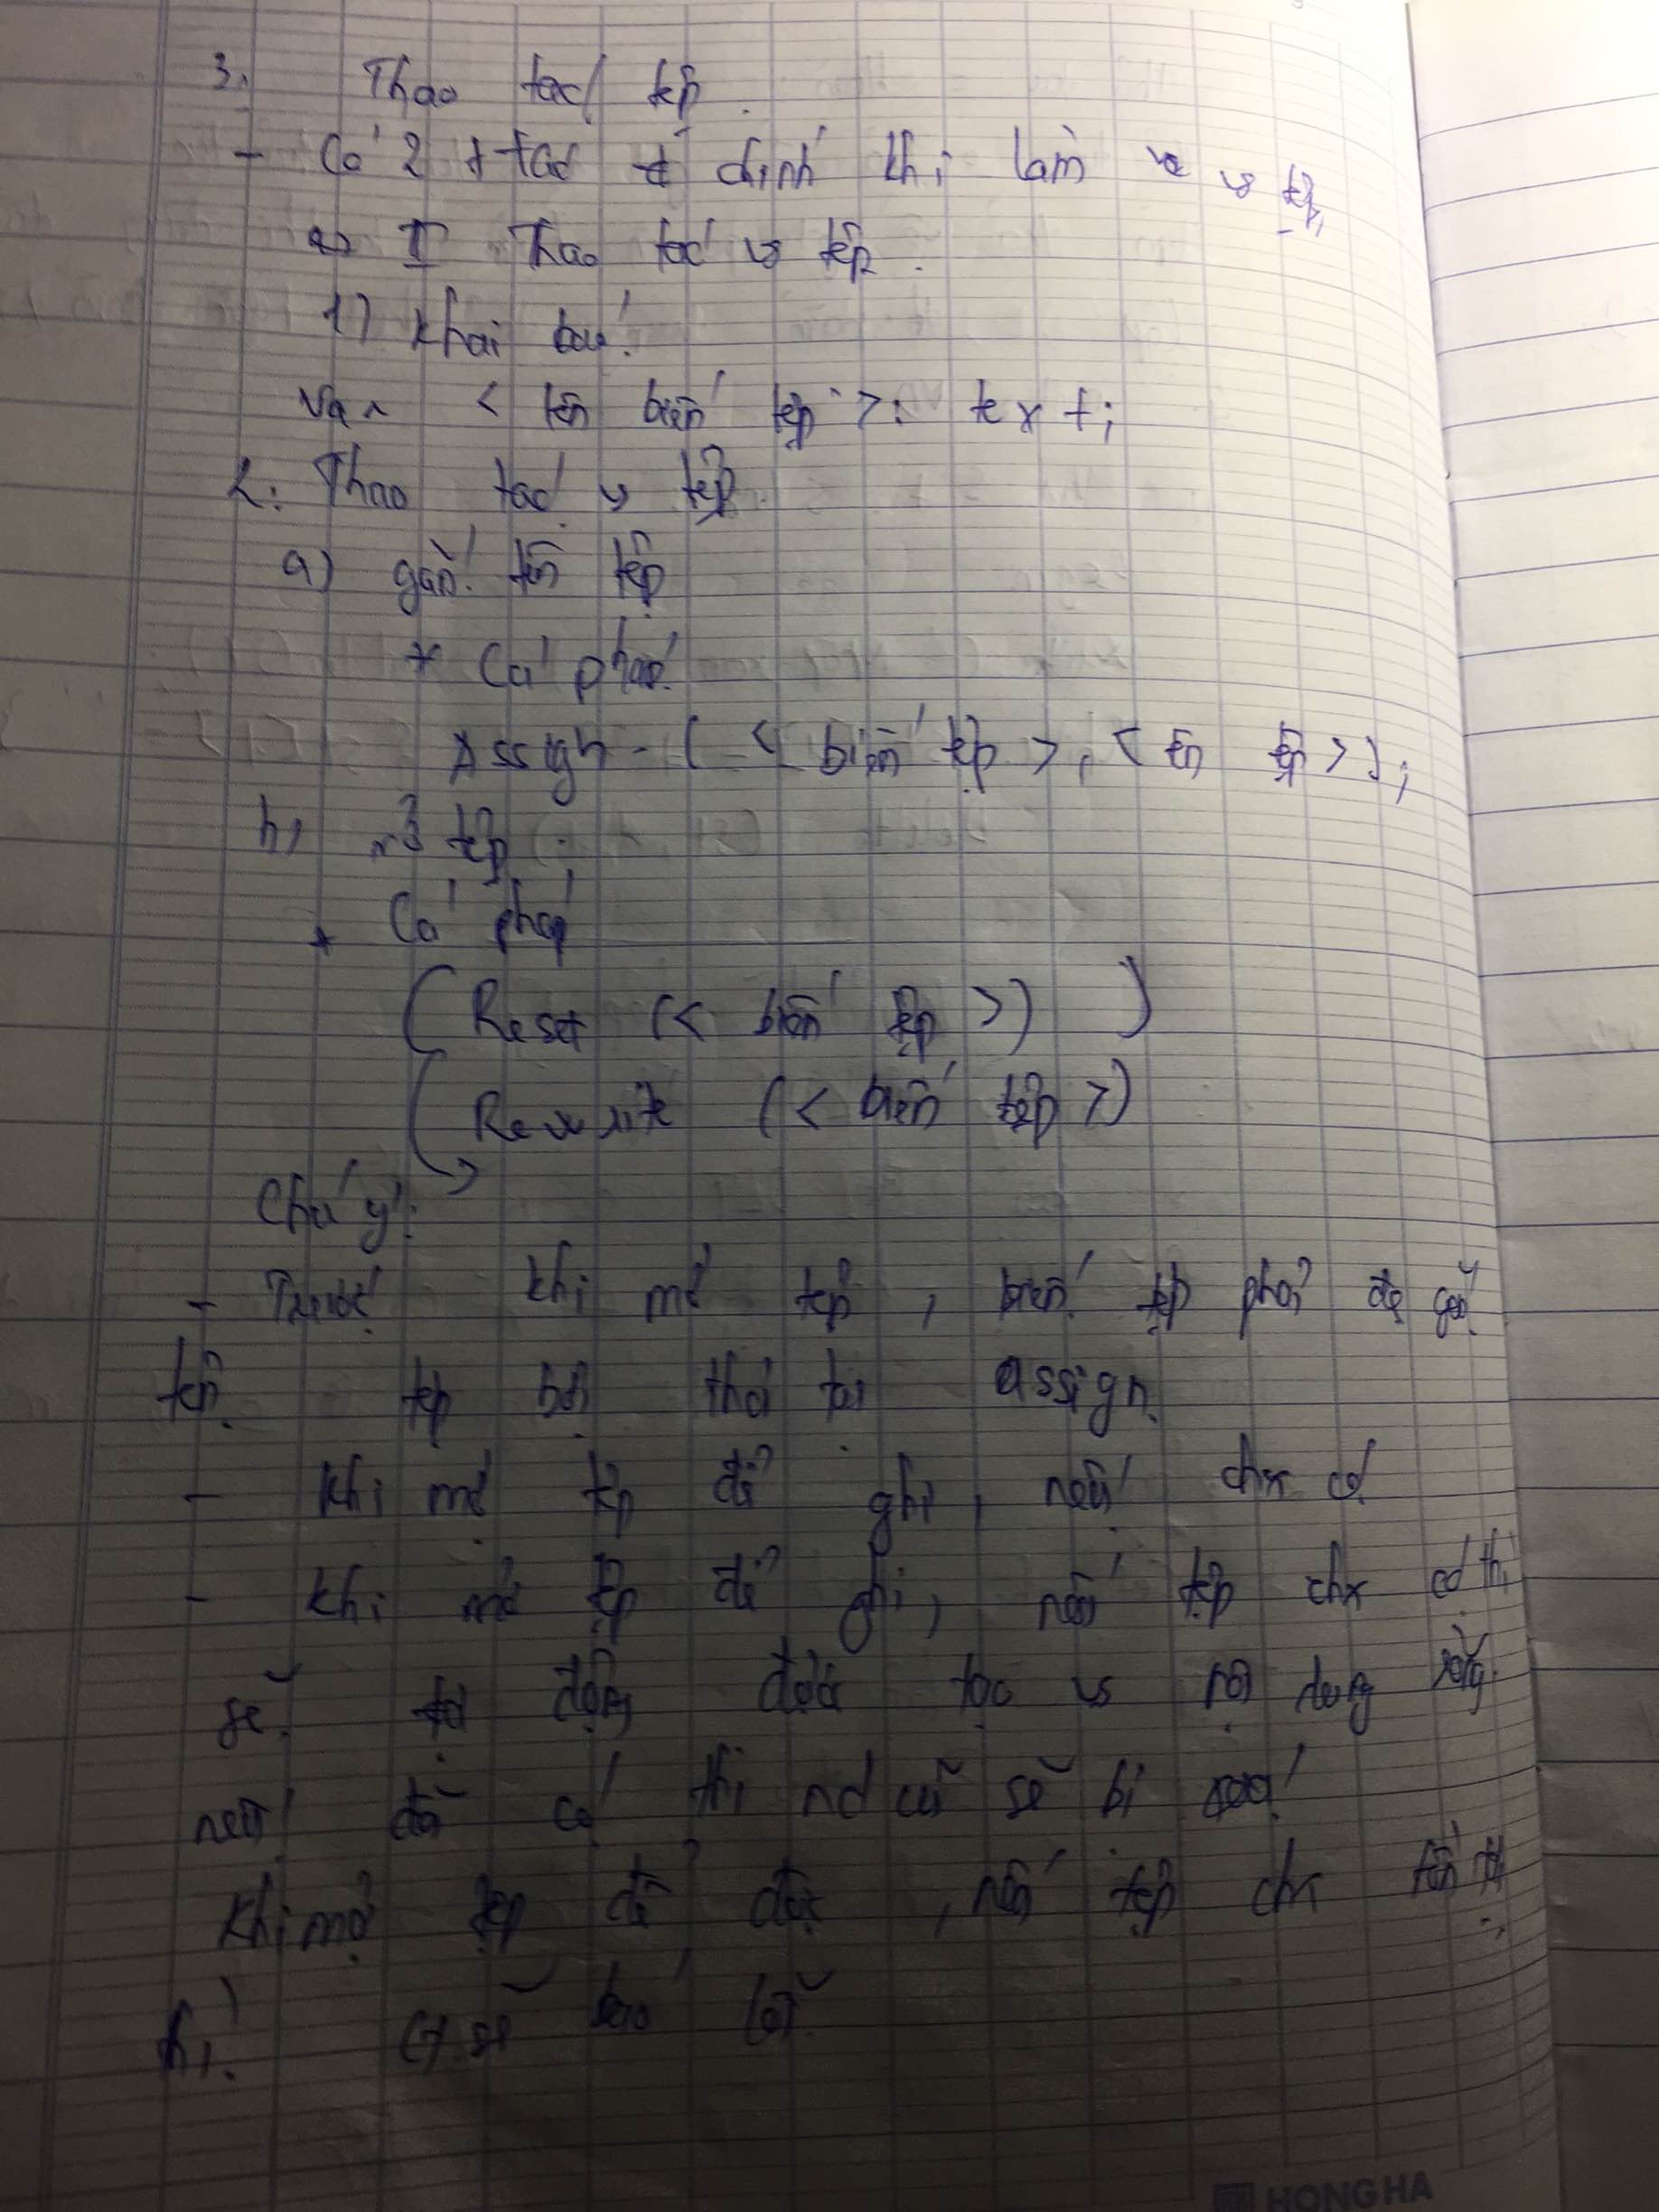 3. Thao tác tệp.
- Có 2 t tác chính khi làm vs tệp,
I Thao tác vs tệp.
1) Khai báo:
Var < tên biến tệp >: text;
2. Thao tác vs tệp.
a) gắn tên tệp
* Cú pháp
Assign - ( < biến tệp >, < tên tệp > );
b) mở tệp ;
* Cú pháp
( Reset (< biến tệp >) )
( Rewrite (< biến tệp >)
Chú ý:
- Trước khi mở tệp, biến tệp phải đc gắn
tên tệp bởi thủ tục assign.
- Khi mở tệp để ghi, nếu chx có
- Khi mở tệp để ghi, nếu tệp chx có thì
sẽ tự động được tạo vs nội dung rỗng.
nếu đã có thì nd cũ sẽ bị xoá
Khi mở tệp để đọc, nếu tệp chx tồn
thì ct sẽ báo lỗi
HONG HA